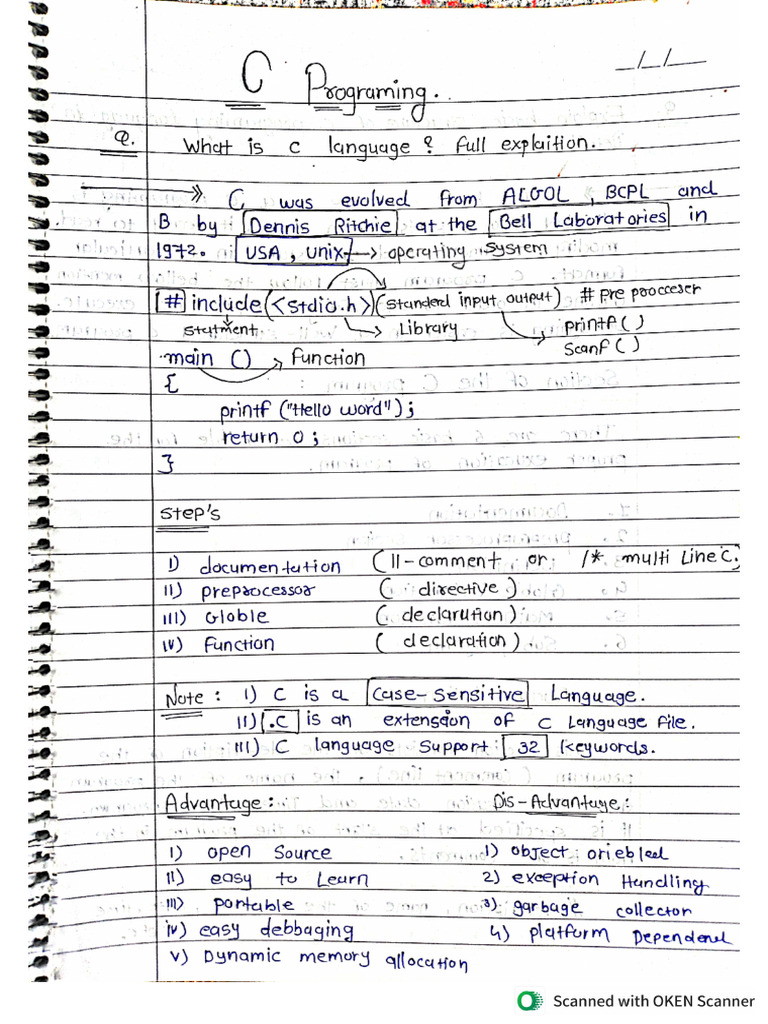 _/_/_
C Programing..
Q. What is c language ? full explaition.
C was evolved from ALGOL, BCPL and
B by Dennis Ritchie at the Bell Laboratories in
1972. USA, Unix → operating system
# include (<stdio.h>) (standerd input output) # pre procceser
statment Library printf ( )
main () function scanf ( )
{
printf ("Hello word");
return 0 ;
}
Step's
I) documentation (11-comment or /* multi Line C;
II) preprocessor ( directive)
III) Globle ( declaration)
IV) function ( declaration)
Note : I) C is a Case-Sensitive Language.
II) .C is an extension of C Language file.
III) C language Support : 32 keywords.
Advantage : Dis-Advantage :
I) open Source 1) object oriebled
II) easy to Learn 2) exception Handling
III) portable 3) garbage collector
IV) easy debbaging 4) platform Dependent
V) Dynamic memory allocation
Scanned with OKEN Scanner